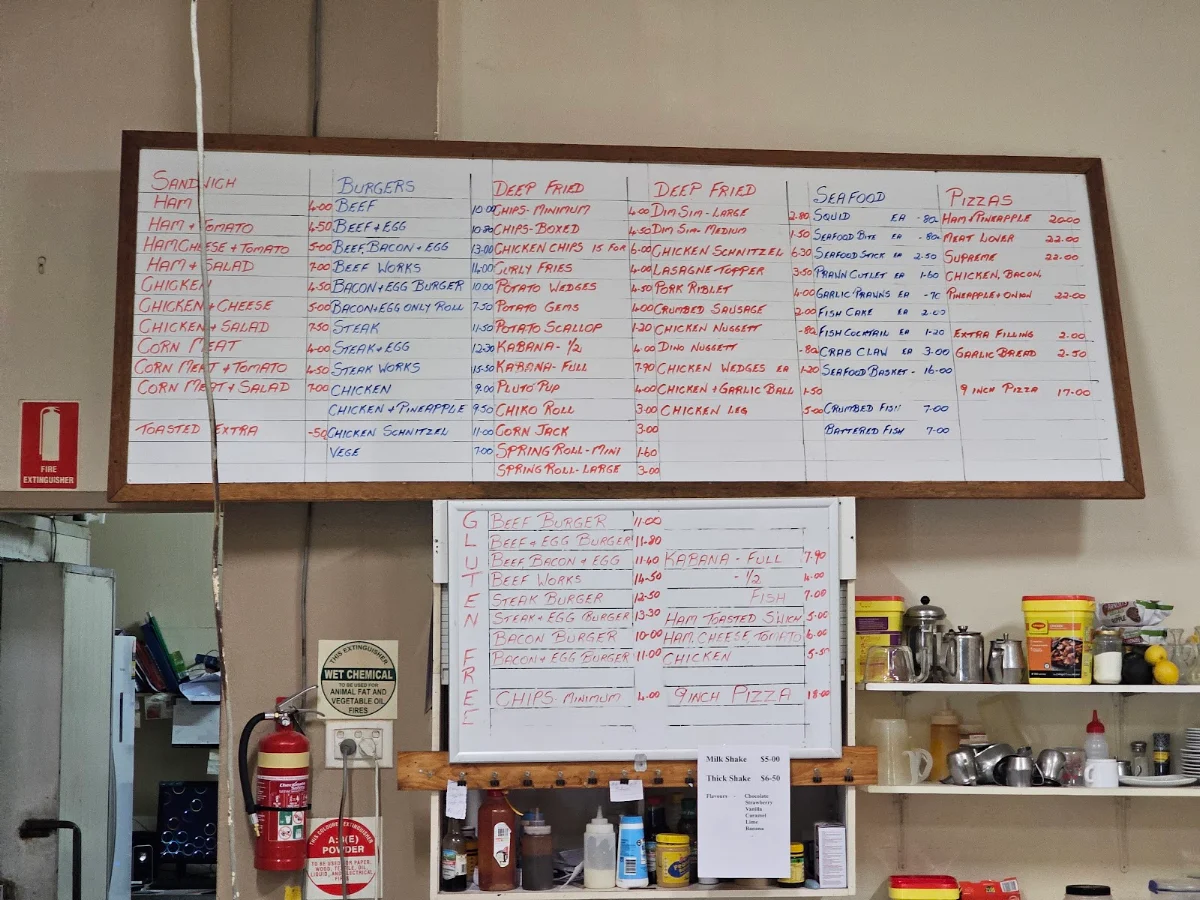 SANDWICH
HAM 4.00
HAM + TOMATO 4.50
HAM CHEESE + TOMATO 5.00
HAM + SALAD 7.00
CHICKEN 4.50
CHICKEN + CHEESE 5.00
CHICKEN + SALAD 7.50
CORN MEAT 4.00
CORN MEAT + TOMATO 4.50
CORN MEAT + SALAD 7.00
TOASTED EXTRA -50
BURGERS
BEEF 10.00
BEEF + EGG 10.80
BEEF, BACON + EGG 13.00
BEEF WORKS 14.00
BACON + EGG BURGER 10.00
BACON + EGG ONLY ROLL 7.50
STEAK 11.50
STEAK + EGG 12.30
STEAK WORKS 15.50
CHICKEN 9.00
CHICKEN + PINEAPPLE 9.50
CHICKEN SCHNITZEL 11.00
VEGE 7.00
DEEP FRIED
CHIPS - MINIMUM 4.00
CHIPS - BOXED 4.50
CHICKEN CHIPS 15 FOR 6.00
CURLY FRIES 4.00
POTATO WEDGES 4.50
POTATO GEMS 4.00
POTATO SCALLOP 1.20
KABANA - 1/2 4.00
KABANA - FULL 7.90
PLUTO PUP 4.00
CHIKO ROLL 3.00
CORN JACK 3.00
SPRING ROLL - MINI 1.60
SPRING ROLL - LARGE 3.00
DEEP FRIED
DIM SIM - LARGE 2.80
DIM SIM - MEDIUM 1.50
CHICKEN SCHNITZEL 6.30
LASAGNE - TOPPER 3.50
PORK RIBLET 4.00
CRUMBED SAUSAGE 2.00
CHICKEN NUGGETT -80
DINO NUGGETT -80
CHICKEN WEDGES EA 1.20
CHICKEN + GARLIC BALL 1.50
CHICKEN LEG 5.00
SEAFOOD
SQUID EA -80
SEAFOOD BITE EA -80
SEAFOOD STICK EA 2.50
PRAWN CUTLET EA 1.60
GARLIC PRAWNS EA
FISH CAKE EA 2.00
FISH COCKTAIL EA 1.20
CRAB CLAW EA 3.00
SEAFOOD BASKET - 16.00
CRUMBED FISH 7.00
BATTERED FISH 7.00
PIZZAS
HAM + PINEAPPLE 20.00
MEAT LOVER 22.00
SUPREME 22.00
CHICKEN, BACON,
PINEAPPLE + ONION 22.00
EXTRA FILLING 2.00
GARLIC BREAD 2.50
9 INCH PIZZA 17.00
GLUTEN FREE
BEEF BURGER 11.00
BEEF + EGG BURGER 11.80
BEEF BACON + EGG 11.40
BEEF WORKS 14.50
STEAK BURGER 12.50
STEAK + EGG BURGER 13.30
BACON BURGER 10.00
BACON + EGG BURGER 11.00
CHIPS - MINIMUM 4.00
KABANA - FULL 7.90
- 1/2 4.00
FISH 7.00
HAM TOASTED S'WICH 5.00
HAM, CHEESE TOMATO 6.00
CHICKEN 5.50
9 INCH PIZZA 18.00
Milk Shake $5.00
Thick Shake $6.50
Flavours - Chocolate
Strawberry
Vanilla
Caramel
Lime
Banana
FIRE
EXTINGUISHER
THIS EXTINGUISHER
WET CHEMICAL
TO BE USED FOR
ANIMAL FAT AND
VEGETABLE OIL
FIRES
THIS COLOURED EXTINGUISHER
A:B(E)
POWDER
TO BE USED FOR PAPER,
WOOD, TEXTILE, OIL,
LIQUID, AND ELECTRICAL
FIRES
MAGGI